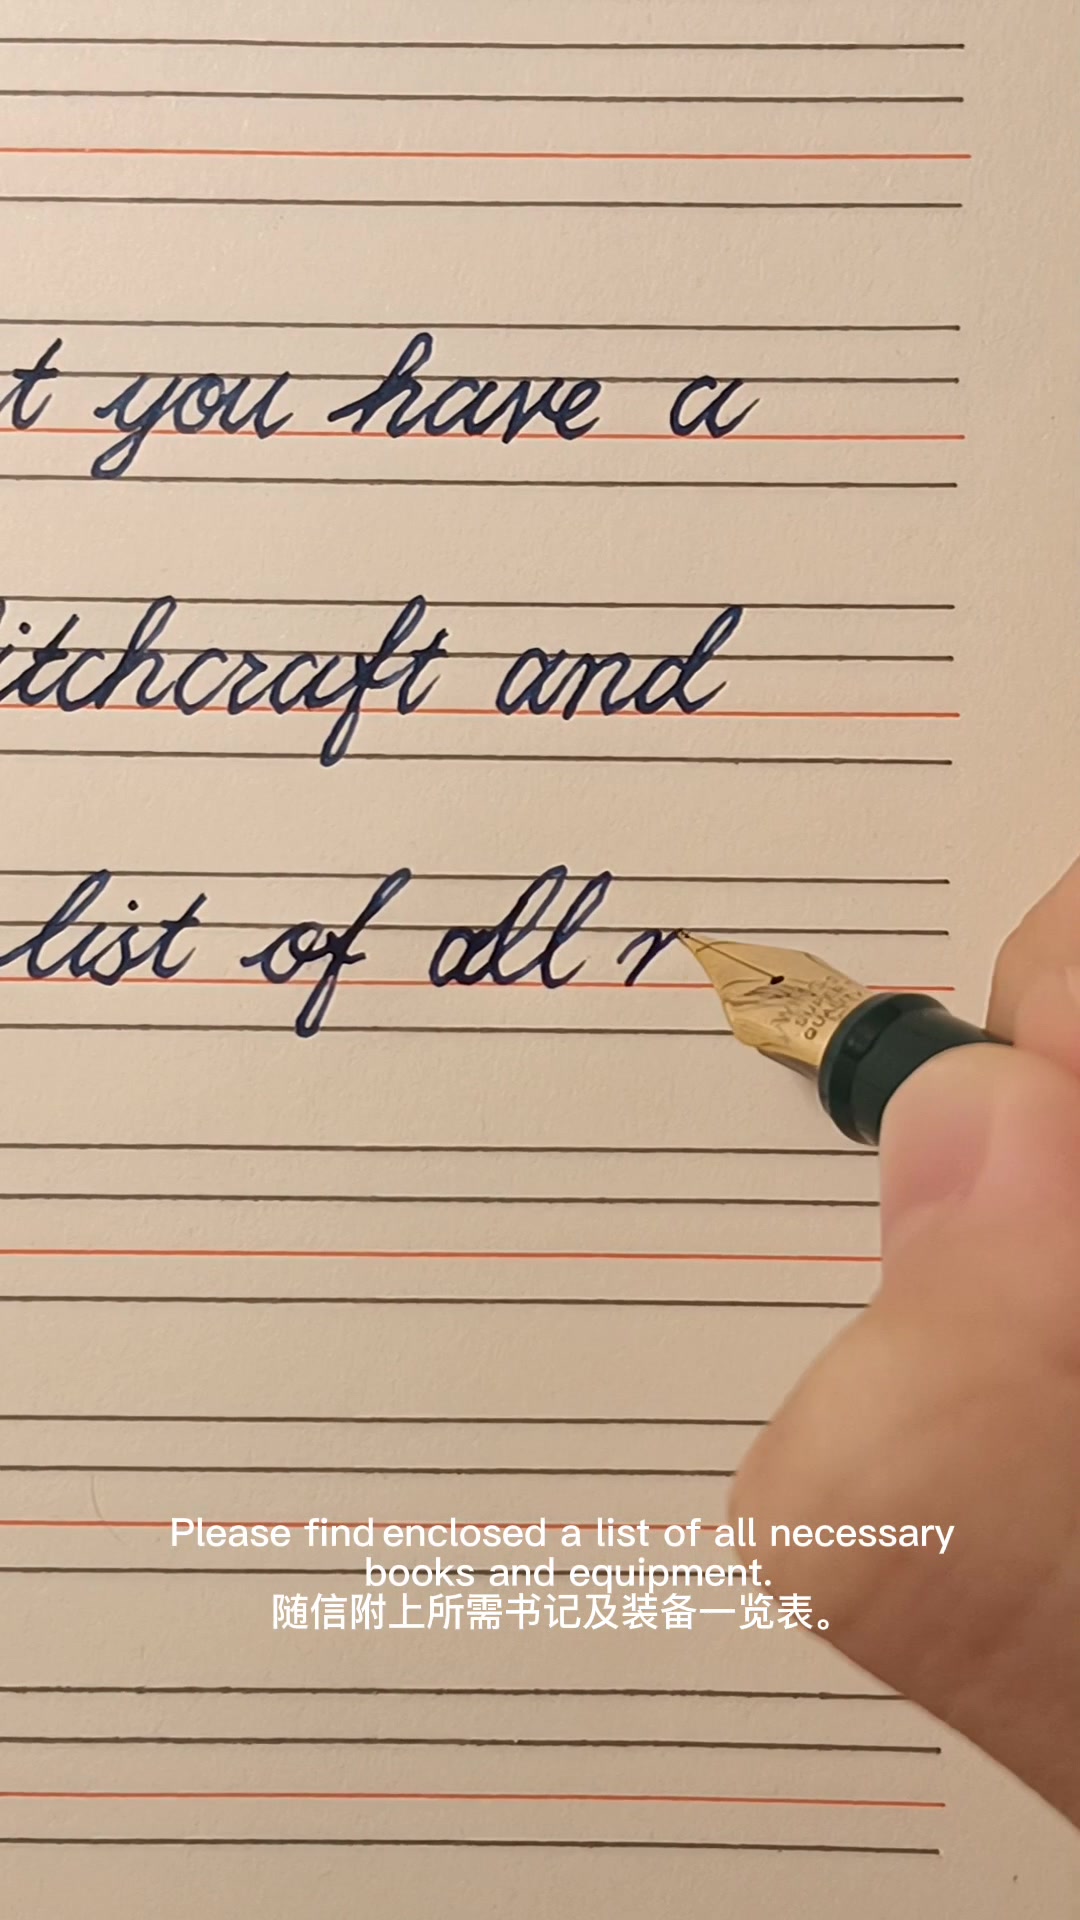 t you have a
itchcraft and
list of all n
Please find enclosed a list of all necessary
books and equipment.
随信附上所需书记及装备一览表。